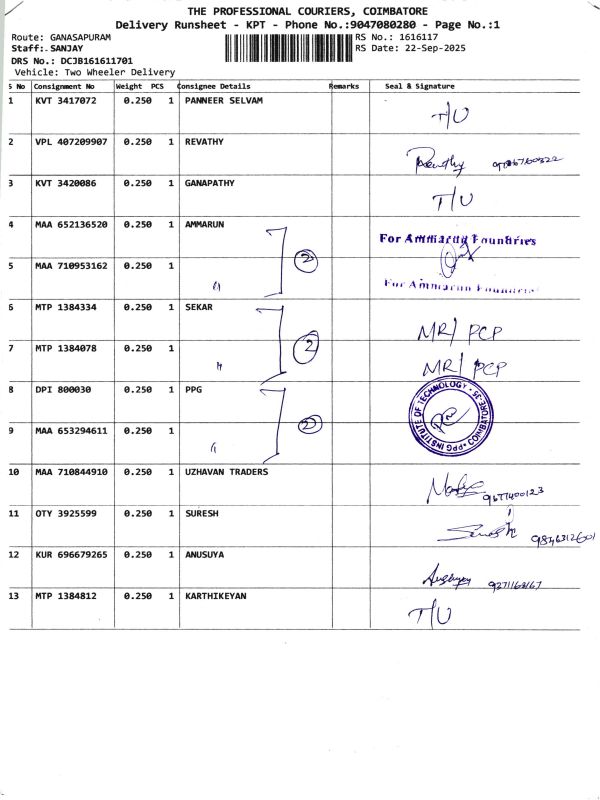 THE PROFESSIONAL COURIERS, COIMBATORE
Delivery Runsheet - KPT - Phone No.:9047080280 - Page No.:1
Route: GANASAPURAM RS No.: 1616117
Staff: SANJAY RS Date: 22-Sep-2025
DRS No.: DCJB161611701
Vehicle: Two Wheeler Delivery
S No Consignment No Weight PCS Consignee Details Remarks Seal & Signature
1 KVT 3417072 0.250 1 PANNEER SELVAM T/U
2 VPL 407209907 0.250 1 REVATHY Revathy
3 KVT 3420086 0.250 1 GANAPATHY T/U
4 MAA 652136520 0.250 1 AMMARUN For Ammarun Foundries
2
5 MAA 710953162 0.250 1 " For Ammarun Foundries
6 MTP 1384334 0.250 1 SEKAR MR/ PCP
2
7 MTP 1384078 0.250 1 " MR/ PCP
8 DPI 800030 0.250 1 PPG PPG INSTITUTE OF TECHNOLOGY COIMBATORE-35
2
9 MAA 653294611 0.250 1 "
10 MAA 710844910 0.250 1 UZHAVAN TRADERS 9677400123
11 OTY 3925599 0.250 1 SURESH 9846312601
12 KUR 696679265 0.250 1 ANUSUYA
13 MTP 1384812 0.250 1 KARTHIKEYAN T/U